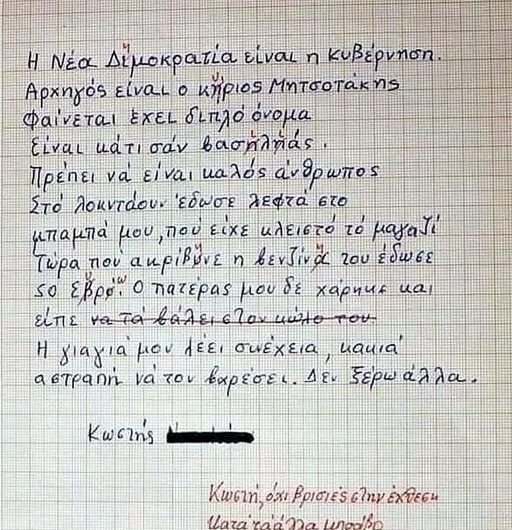 Η Νέα Δημοκρατία είναι η κυβέρνηση.
Αρχηγός είναι ο κήριος Μητσοτάκης
Φαίνεται έχει διπλό όνομα
Είναι κάτι σάν βασηληάς.
Πρέπει νά είναι καλός άνθρωπος
Στό λοκντάουν έδωσε λεφτά στο
μπαμπά μου, πού είχε κλειστό τό μαγαζί
Τώρα πού ακρίβηνε η βενζίνα του έδωσε
50 Εβρό. Ο πατέρας μου δε χάρηκε και
είπε να τά βάλει στον κώλο του.
Η γιαγιά μου λέει συνέχεια, κακιά
αστραπή νά τον βαρέσει. Δεν ξέρω άλλα.
Κωστής
Κωστή, όχι βρισιές στην έκθεση
Κατά τα άλλα μπράβο